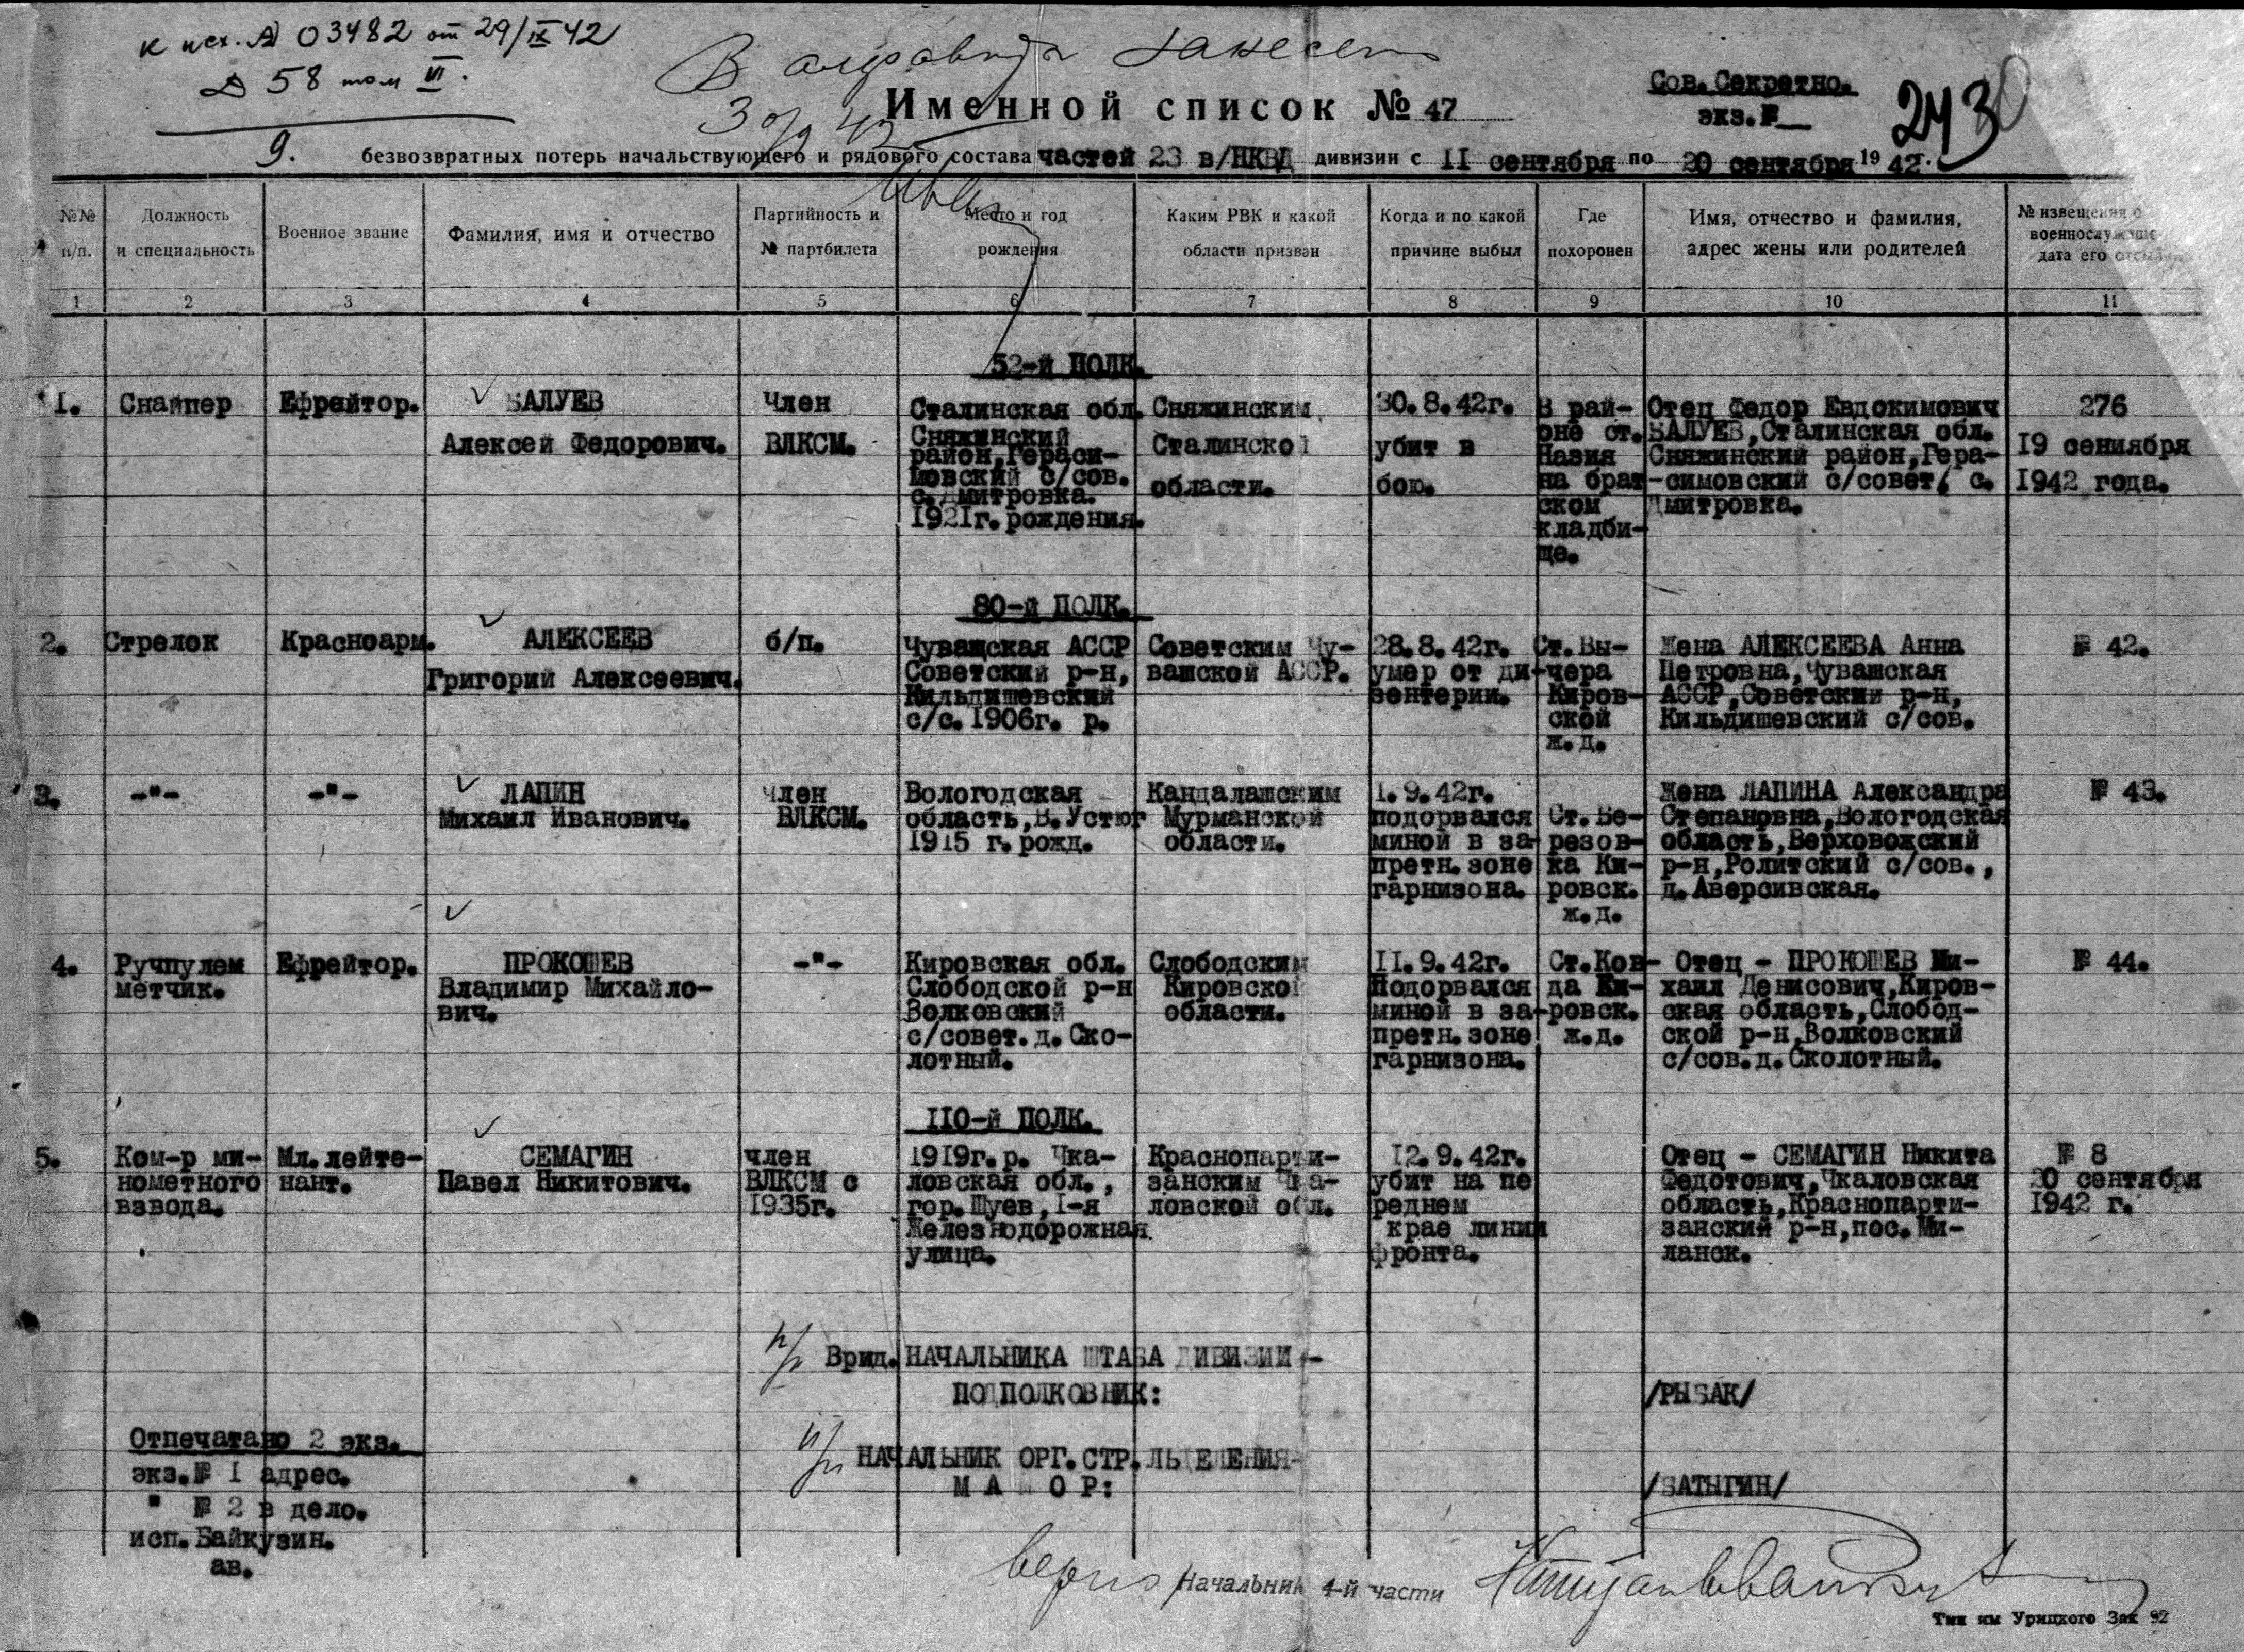 к исх. № 03482 от 29/IX 42
Д 58 том VI.
9.
В алфавит
30/9 42
Сов. Секретно.
экз.№
243
Именной список № 47
безвозвратных потерь начальствующего и рядового состава частей 23 в/НКВД дивизии с 11 сентября по 20 сентября 1942 г.
№№ п/п.
Должность и специальность
Военное звание
Фамилия, имя и отчество
Партийность и № партбилета
Место и год рождения
Каким РВК и какой области призван
Когда и по какой причине выбыл
Где похоронен
Имя, отчество и фамилия, адрес жены или родителей
№ извещения о
военнослужаще
дата его отсыл
1 2 3 4 5 6 7 8 9 10 11
52-й ПОЛК.
I.
Снайпер
Ефрейтор.
БАЛУЕВ
Алексей Федорович.
Член
ВЛКСМ.
Сталинская обл.
Сняжинский
район,Гераси-
мовский с/сов.
с.Дмитровка.
1921г.рождения.
Сняжинским
Сталинской
области.
30.8.42г.
убит в
бою.
В рай-
оне ст.
Назия
на брат-
ском
кладби-
ще.
Отец Федор Евдокимович
БАЛУЕВ,Сталинская обл.
Сняжинский район,Гера-
симовский с/совет, с.
Дмитровка.
276
19 сениября
1942 года.
80-й ПОЛК.
2.
Стрелок
Красноарм.
АЛЕКСЕЕВ
Григорий Алексеевич.
б/п.
Чувашская АССР
Советский р-н,
Кильдишевский
с/с. 1906г. р.
Советским Чу-
вашской АССР.
28.8.42г.
умер от ди-
зентерии.
Ст.Вы-
чера
Киров-
ской
ж.д.
Жена АЛЕКСЕЕВА Анна
Петровна,Чувашская
АССР,Советский р-н,
Кильдишевский с/сов.
№ 42.
3.
-"-
-"-
ЛАПИН
Михаил Иванович.
член
ВЛКСМ.
Вологодская
область,В.Устюг
1915 г.рожд.
Кандалашским
Мурманской
области.
1.9.42г.
подорвался
миной в за-
претн.зоне
гарнизона.
Ст.Бе-
резов-
ка Ки-
ровск.
ж.д.
Жена ЛАПИНА Александра
Степановна,Вологодская
область,Верховожский
р-н,Ролитский с/сов.,
д.Аверсивская.
№ 43.
4.
Ручпулем
метчик.
Ефрейтор.
ПРОКОШЕВ
Владимир Михайло-
вич.
-"-
Кировская обл.
Слободской р-н
Волковский
с/совет.д.Ско-
лотный.
Слободским
Кировской
области.
11.9.42г.
Подорвался
миной в за-
претн.зоне
гарнизона.
Ст.Ков-
да Ки-
ровск.
ж.д.
Отец - ПРОКОШЕВ Ми-
хаил Денисович,Киров-
ская область,Слобод-
ской р-н,Волковский
с/сов.д.Сколотный.
№ 44.
110-й ПОЛК.
5.
Ком-р ми-
нометного
взвода.
Мл.лейте-
нант.
СЕМАГИН
Павел Никитович.
член
ВЛКСМ с
1935г.
1919г.р. Чка-
ловская обл.,
гор.Шуев,1-я
Железнодорожная
улица.
Краснопарти-
занским Чка-
ловской обл.
12.9.42г.
убит на пе
реднем
крае линии
фронта.
Отец - СЕМАГИН Никита
Федотович,Чкаловская
область,Краснопарти-
занский р-н,пос.Ми-
ланск.
№ 8
20 сентября
1942 г.
п/п Врид.НАЧАЛЬНИКА ШТАБА ДИВИЗИИ -
ПОДПОЛКОВНИК:
/РЫБАК/
п/п НАЧАЛЬНИК ОРГ.СТР.
МАЙОР:
/БАТЫГИН/
Отпечатано 2 экз.
экз.№ 1 адрес.
" № 2 в дело.
исп.Байкузин.
ав.
верно Начальник 4-й части
Тип им Урицкого Зак 92